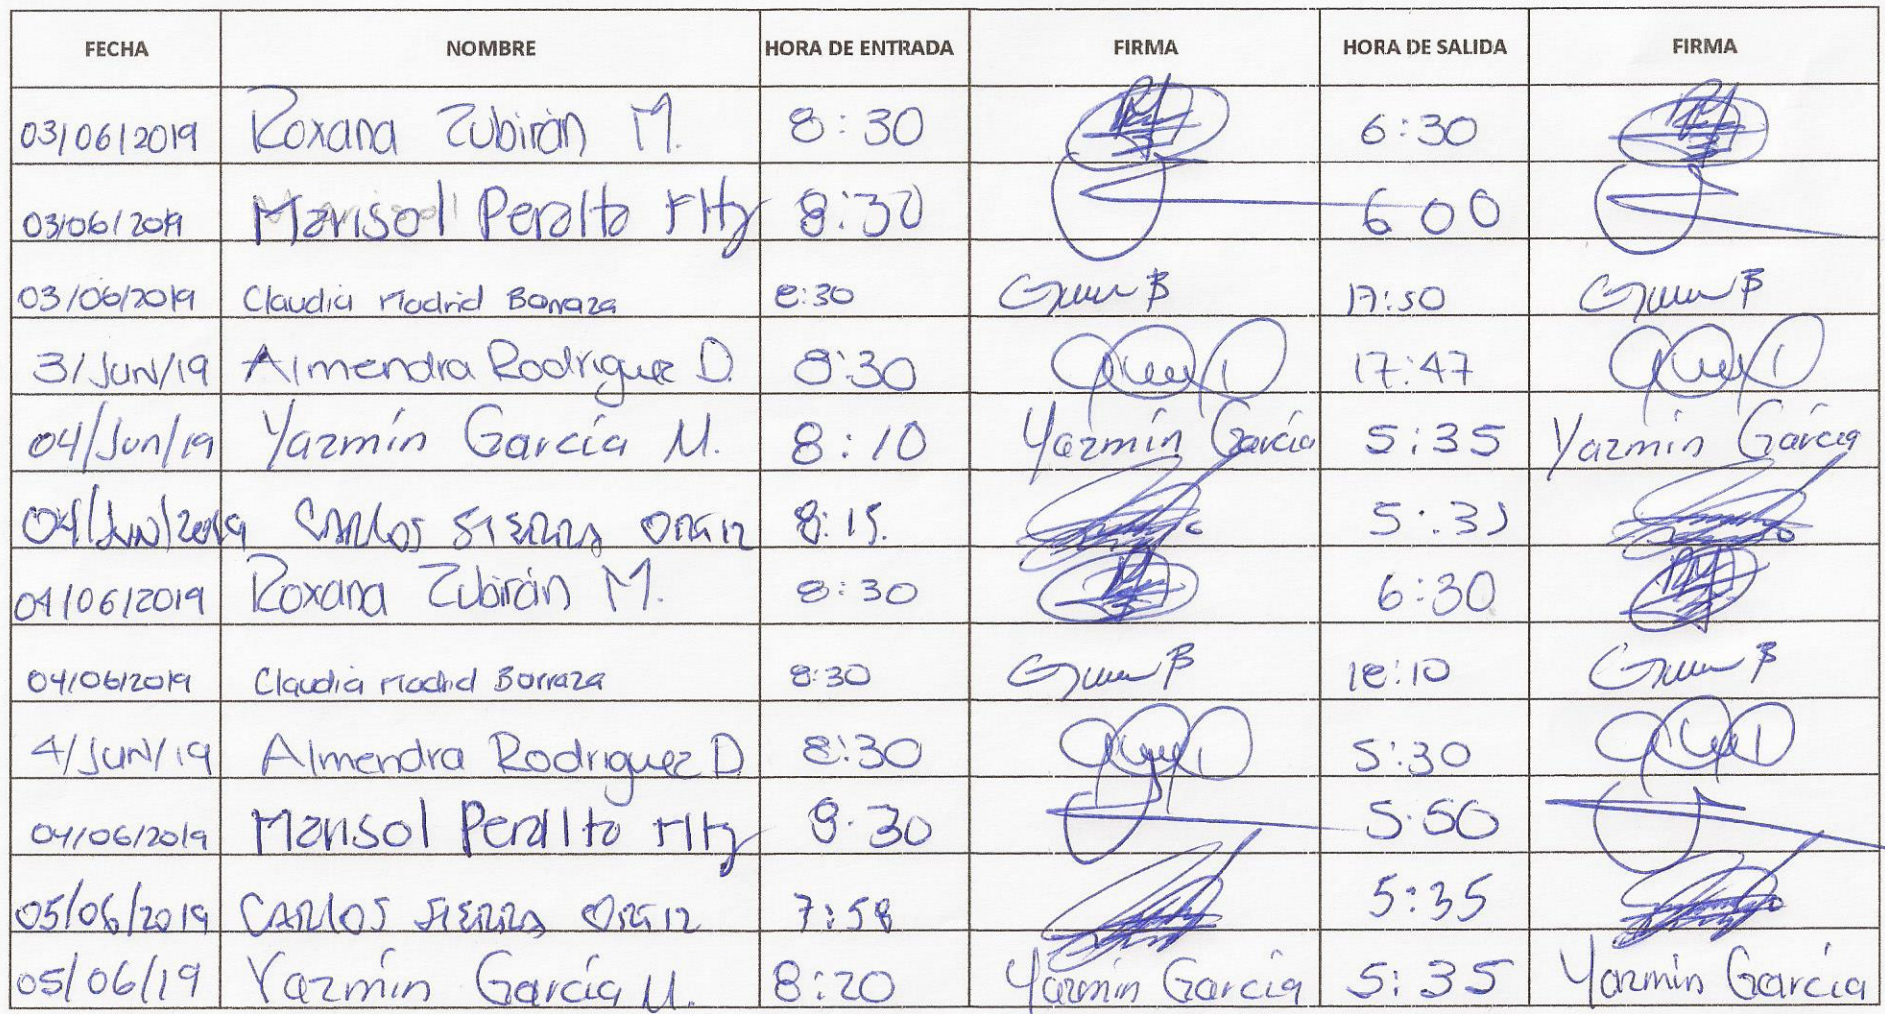 FECHA NOMBRE HORA DE ENTRADA FIRMA HORA DE SALIDA FIRMA
03/06/2019 Roxana Zubirán M. 8:30 6:30
03/06/2019 Marisol Peralta Hdz 8:30 6 00
03/06/2019 Claudia Madrid Barraza 8:30 17:50
3/Jun/19 Almendra Rodriguez D. 8:30 17:47
04/Jun/19 Yazmín García M. 8:10 Yazmín García 5:35 Yazmín García
04/Jun/2019 CARLOS SIERRA ORTIZ 8:15. 5:35
04/06/2019 Roxana Zubirán M. 8:30 6:30
04/06/2019 Claudia Madrid Barraza 8:30 18:10
4/Jun/19 Almendra Rodriguez D 8:30 5:30
04/06/2019 Marisol Peralta 8.30 5.50
05/06/2019 CARLOS SIERRA ORTIZ 7:58 5:35
05/06/19 Yazmín García M. 8:20 Yazmín García 5:35 Yazmin García